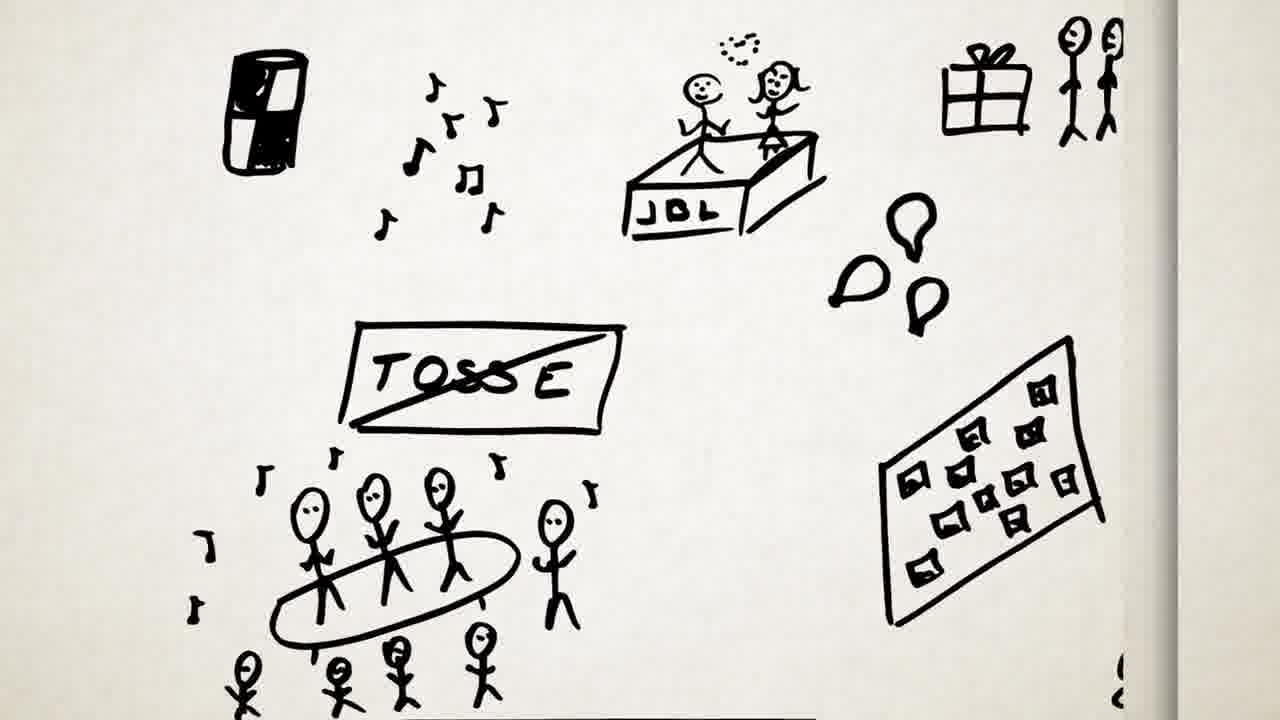 JBL
TOSSE